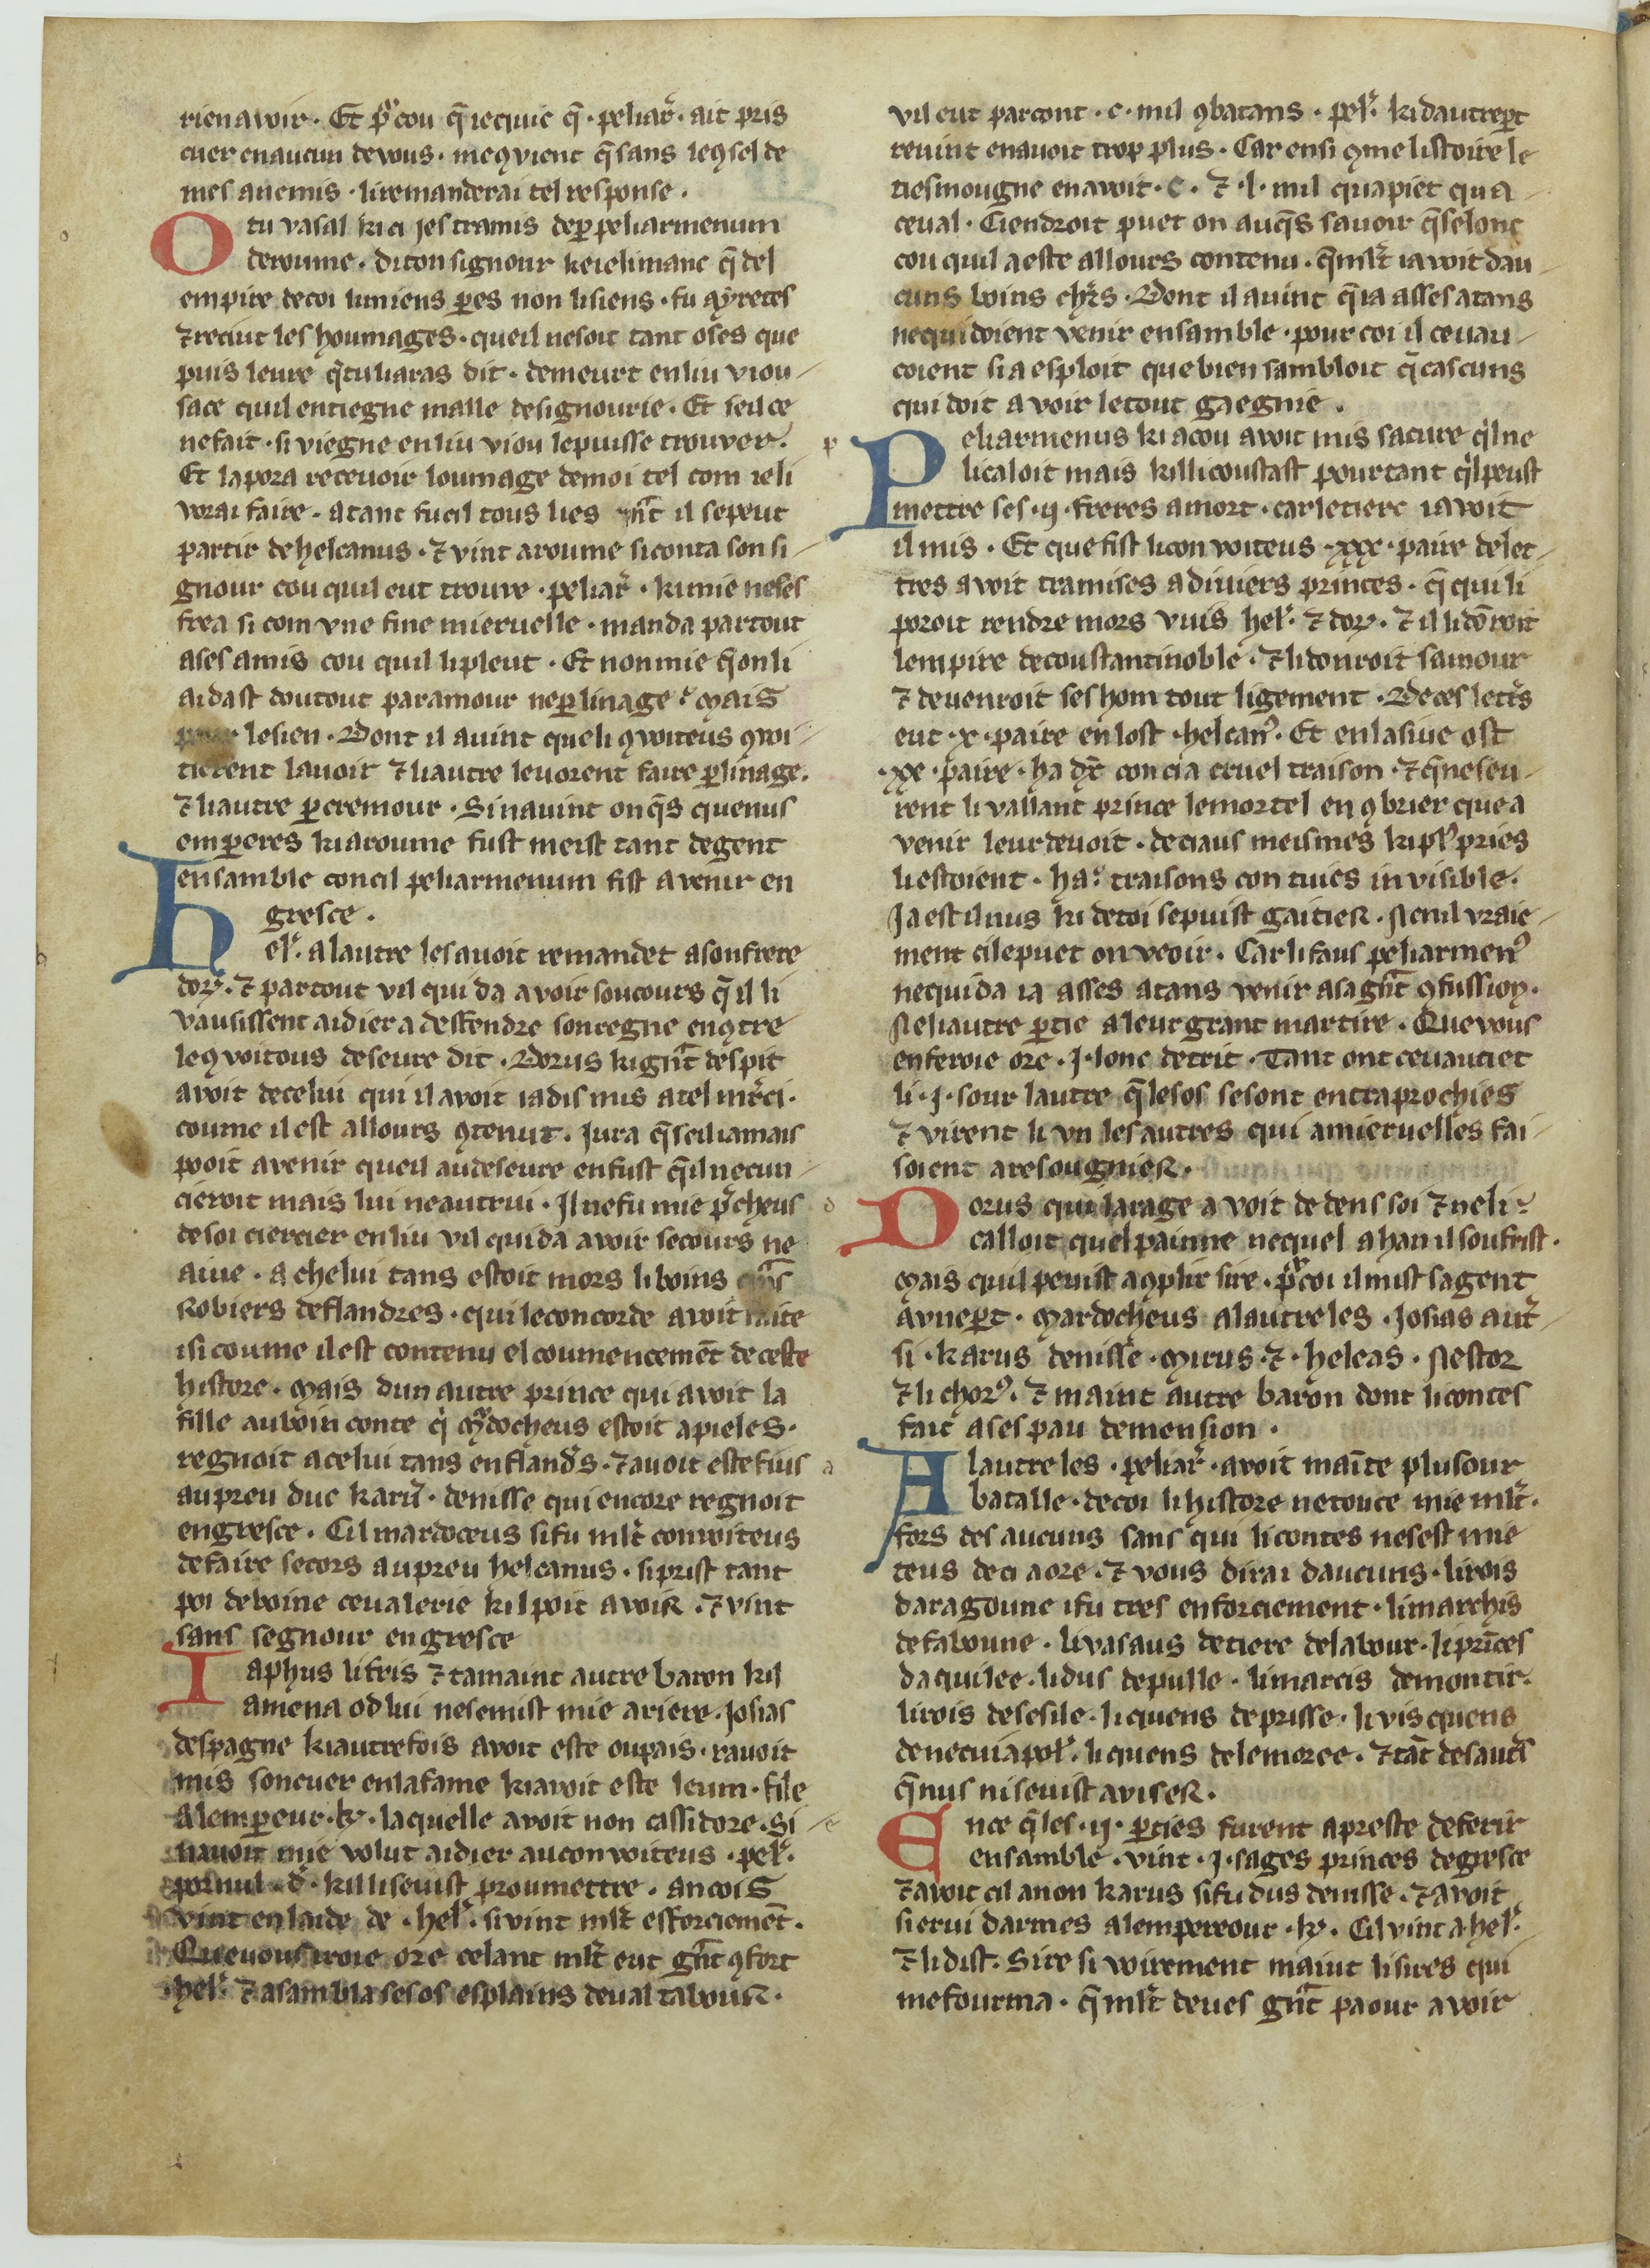 rien avoir · Et p̃ cou q̃ ie quic q̃ · peliar̃ · ait pris
cuer en aucun de vous · me ꝯvient q̃ sans le ꝯsel de
mes anemis · li remanderai tel response ·
O tu vasal ki ci ies tramis de ꝑ peliarmenum
de roume · di ton signour ke ie li manc q̃ del
empire de coi li miens peres non li siens · fu ꝯqretes
⁊ reciut les houmages · que il ne soit tant oses que
puis leure q̃ tu li aras dit · demeurt en liu v iou
sace quil en tiegne malle de signourie · Et se il ce
ne fait · si viegne en liu v iou le puisse trouver ·
Et la pora recevoir loumage de moi tel com ie li
vorai faire · atant fu cil tous lies q̃nt il se peut
partir de helcanus · ⁊ vint a roume si conta son si
gnour cou quil eut trouve · peliar̃ · ki mie ne les
frea si com vne fine miervelle · manda par tout
a ses amis cou quil li pleut · Et non mie q̃ on li
aidast dou tout par amour ne ꝑ linage · mais
pour le sien · Dont il avint que li ꝯvoiteus ꝯvoi
tierent lavoir ⁊ li autre le vorent faire ꝑ linage ·
⁊ li autre ꝑ cremour · Si navint onq̃s que nus
emperes ki a roume fust meist tant de gent
ensamble con cil peliarmenum fist avenir en
gresce ·
Hel̃ · a lautre les avoit remandet a son frere
dor̃ · ⁊ par tout v il quida avoir soucours q̃ il li
vausissent aidier a deffendre son regne enꝯtre
le ꝯvoitous deseure dit · Dorus ki gñt despit
avoit de celui qui il avoit iadis mis a tel m̃rci ·
coume il est allours ꝯtenut · Iura q̃ se il iamais
pooit avenir que il au deseure en fust q̃ il ne cun
cieroit mais lui ne autrui · Il ne fu mie p̃cheus
de soi ciercier en liu v il quida avoir secours ne
aiue · a chelui tans estoit mors li boins
Robiers de flandres · qui le concorde avoit faite
isi coume il est contenu el coumencem̃t de ceste
histore · Mais dun autre prince qui avoit la
fille au boin conte q̃ m̃docheus estoit apieles ·
regnoit a celui tans en fland̃s · ⁊ avoit este fius
au preu duc karũ · denisse qui encore regnoit
en gresce · Cil mardoceus si fu ml̃t convoiteus
de faire secors au preu helcanus · si prist tant
poi de boine cevalerie kil poit avoir · ⁊ vint
sans segnour en gresce
Iaphus li fris ⁊ tamaint autre baron kil
amena od lui ne se mist mie ariere · Iosias
despagne ki autrefois avoit este ou pais · ravoit
mis son cuer en la fame ki avoit este leum · file
a lempereur · k̃ · laquelle avoit non cassidore · Si
navoit mie volut aidier au convoiteus · pel̃ ·
por nul · d̃ · kil li seuist proumettre · ancois
vint en laide de · hel̃ · si vint ml̃t efforciem̃t ·
Que vous iroie ore celant ml̃t eut gñt ꝯfort
· hel̃ · ⁊ asambla ses os es plains de val tabour ·
v il eut par cont · c · mil ꝯbatans · pel̃ · ki dautre pert
revint en avoit trop plus · Car ensi ꝯme listoire le
tiesmougne en avoit · c · ⁊ · l · mil qua piet qua
ceval · Ciendroit puet on auq̃s savoir q̃ selonc
cou quil a este allours contenu · q̃ ml̃t i avoit dau
cuns boins ch̃rs · Dont il avint q̃ ia asses a tans
ne quidoient venir ensamble · pour coi il cevau
coient si a esploit que bien sambloit q̃ cascuns
qui doit avoir le tout gaegnie ·
Peliarmenus ki a cou avoit mis sa cure q̃l ne
li caloit mais kil li coustast pour tant q̃l peust
mettre ses · ij · freres a mort · car le tierc i avoit
il mis · Et que fist li convoiteus · xxx · paire de let
tres avoit tramises a divers princes · q̃ qui li
poroit rendre mors v vis hel̃ · ⁊ dor̃ · ⁊ il li dõroit
lempire de coustantinoble · ⁊ li donroit samour
⁊ devenroit ses hom tout ligement · De ces letr̃s
eut · x · paire en lost · helcan̾ · Et en la siue ost
· xx · paire · ha dx̃ con ci a cruel traison · ⁊ q̃ ne seu
rent li vallant prince le mortel enꝯbrier que a
venir leur devoit · de ciaus meismes ki pl̾ pries
li estoient · ha · traisons con tu ies invisible ·
Ia est il nus ki de toi se puist gaitier · Nenil vraie
ment ci le puet on veoir · Car li faus peliarmen̾
ne quida ia asses a tans venir a sa gñt ꝯfussion ·
Ne li autre ꝑtie a leur grant martire · Que vous
en feroie ore · j · lonc detrit · Tant ont cevauciet
li · j · sour lautre q̃ les os se sont entraprochies
⁊ virent li vn les autres qui a miervelles fai
soient a resougnier ·
Dorus qui la rage avoit dedens soi ⁊ ne li
calloit quel painne ne quel ahan il soufrist ·
Mais quil peuist aꝯplir sire · p̃ coi il mist sa gent
a vne ꝑt · Mardocheus a lautre les · Iosias aut̃
si · Karus denisse · Mirus · ⁊ · heleas · Nestor
⁊ lichor̾ · ⁊ maint autre baron dont li contes
fait ases pau de mension ·
A lautre les · peliar̃ · avoit mañte plusour
batalle · de coi lihistore ne touce mie ml̃t ·
fors des aucuns sans qui li contes nesest mie
teus deci a ore · ⁊ vous dirai daucuns · li rois
daragoune i fu tres enforciement · li marchis
de faboune · li vasaus de tiere de labour · li prĩces
daquilee · li dus de puille · li marcis de montir̃ ·
li rois de sesile · li quens de prisse · li vis quens
de netuiapol̃ · li quens de le moree · ⁊ tãt des aut̃s
q̃ nus ni seuist aviser ·
En ce q̃ les · ij · ꝑties furent apreste de ferir
ensamble · vint · j · sages princes de gresce
⁊ avoit cil a non karus si fu dus denisse · ⁊ avoit
siervi darmes a lempereour · k̃ · Cil vint a · hel̃ ·
⁊ li dist · Sire si voirement maiut li sires qui
me fourma · q̃ ml̃t deues gñt paour avoir